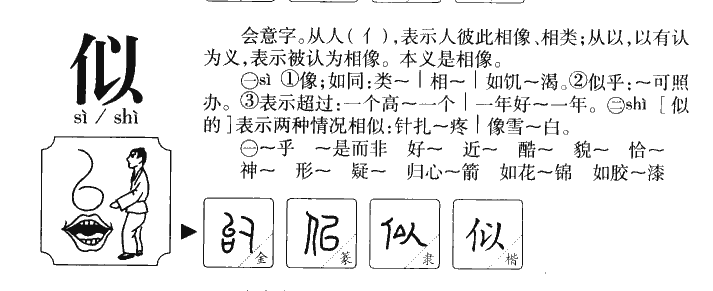 似
sì / shì
会意字。从人(亻),表示人彼此相像、相类;从以,以有认
为义,表示被认为相像。本义是相像。
㊀sì ①像;如同:类～｜相～｜如饥～渴。②似乎:～可照
办。③表示超过:一个高～一个｜一年好～一年。㊁shì [似
的]表示两种情况相似:针扎～疼｜像雪～白。
㊀～乎 ～是而非 好～ 近～ 酷～ 貌～ 恰～
神～ 形～ 疑～ 归心～箭 如花～锦 如胶～漆
金 似 篆 似 隶 似 楷